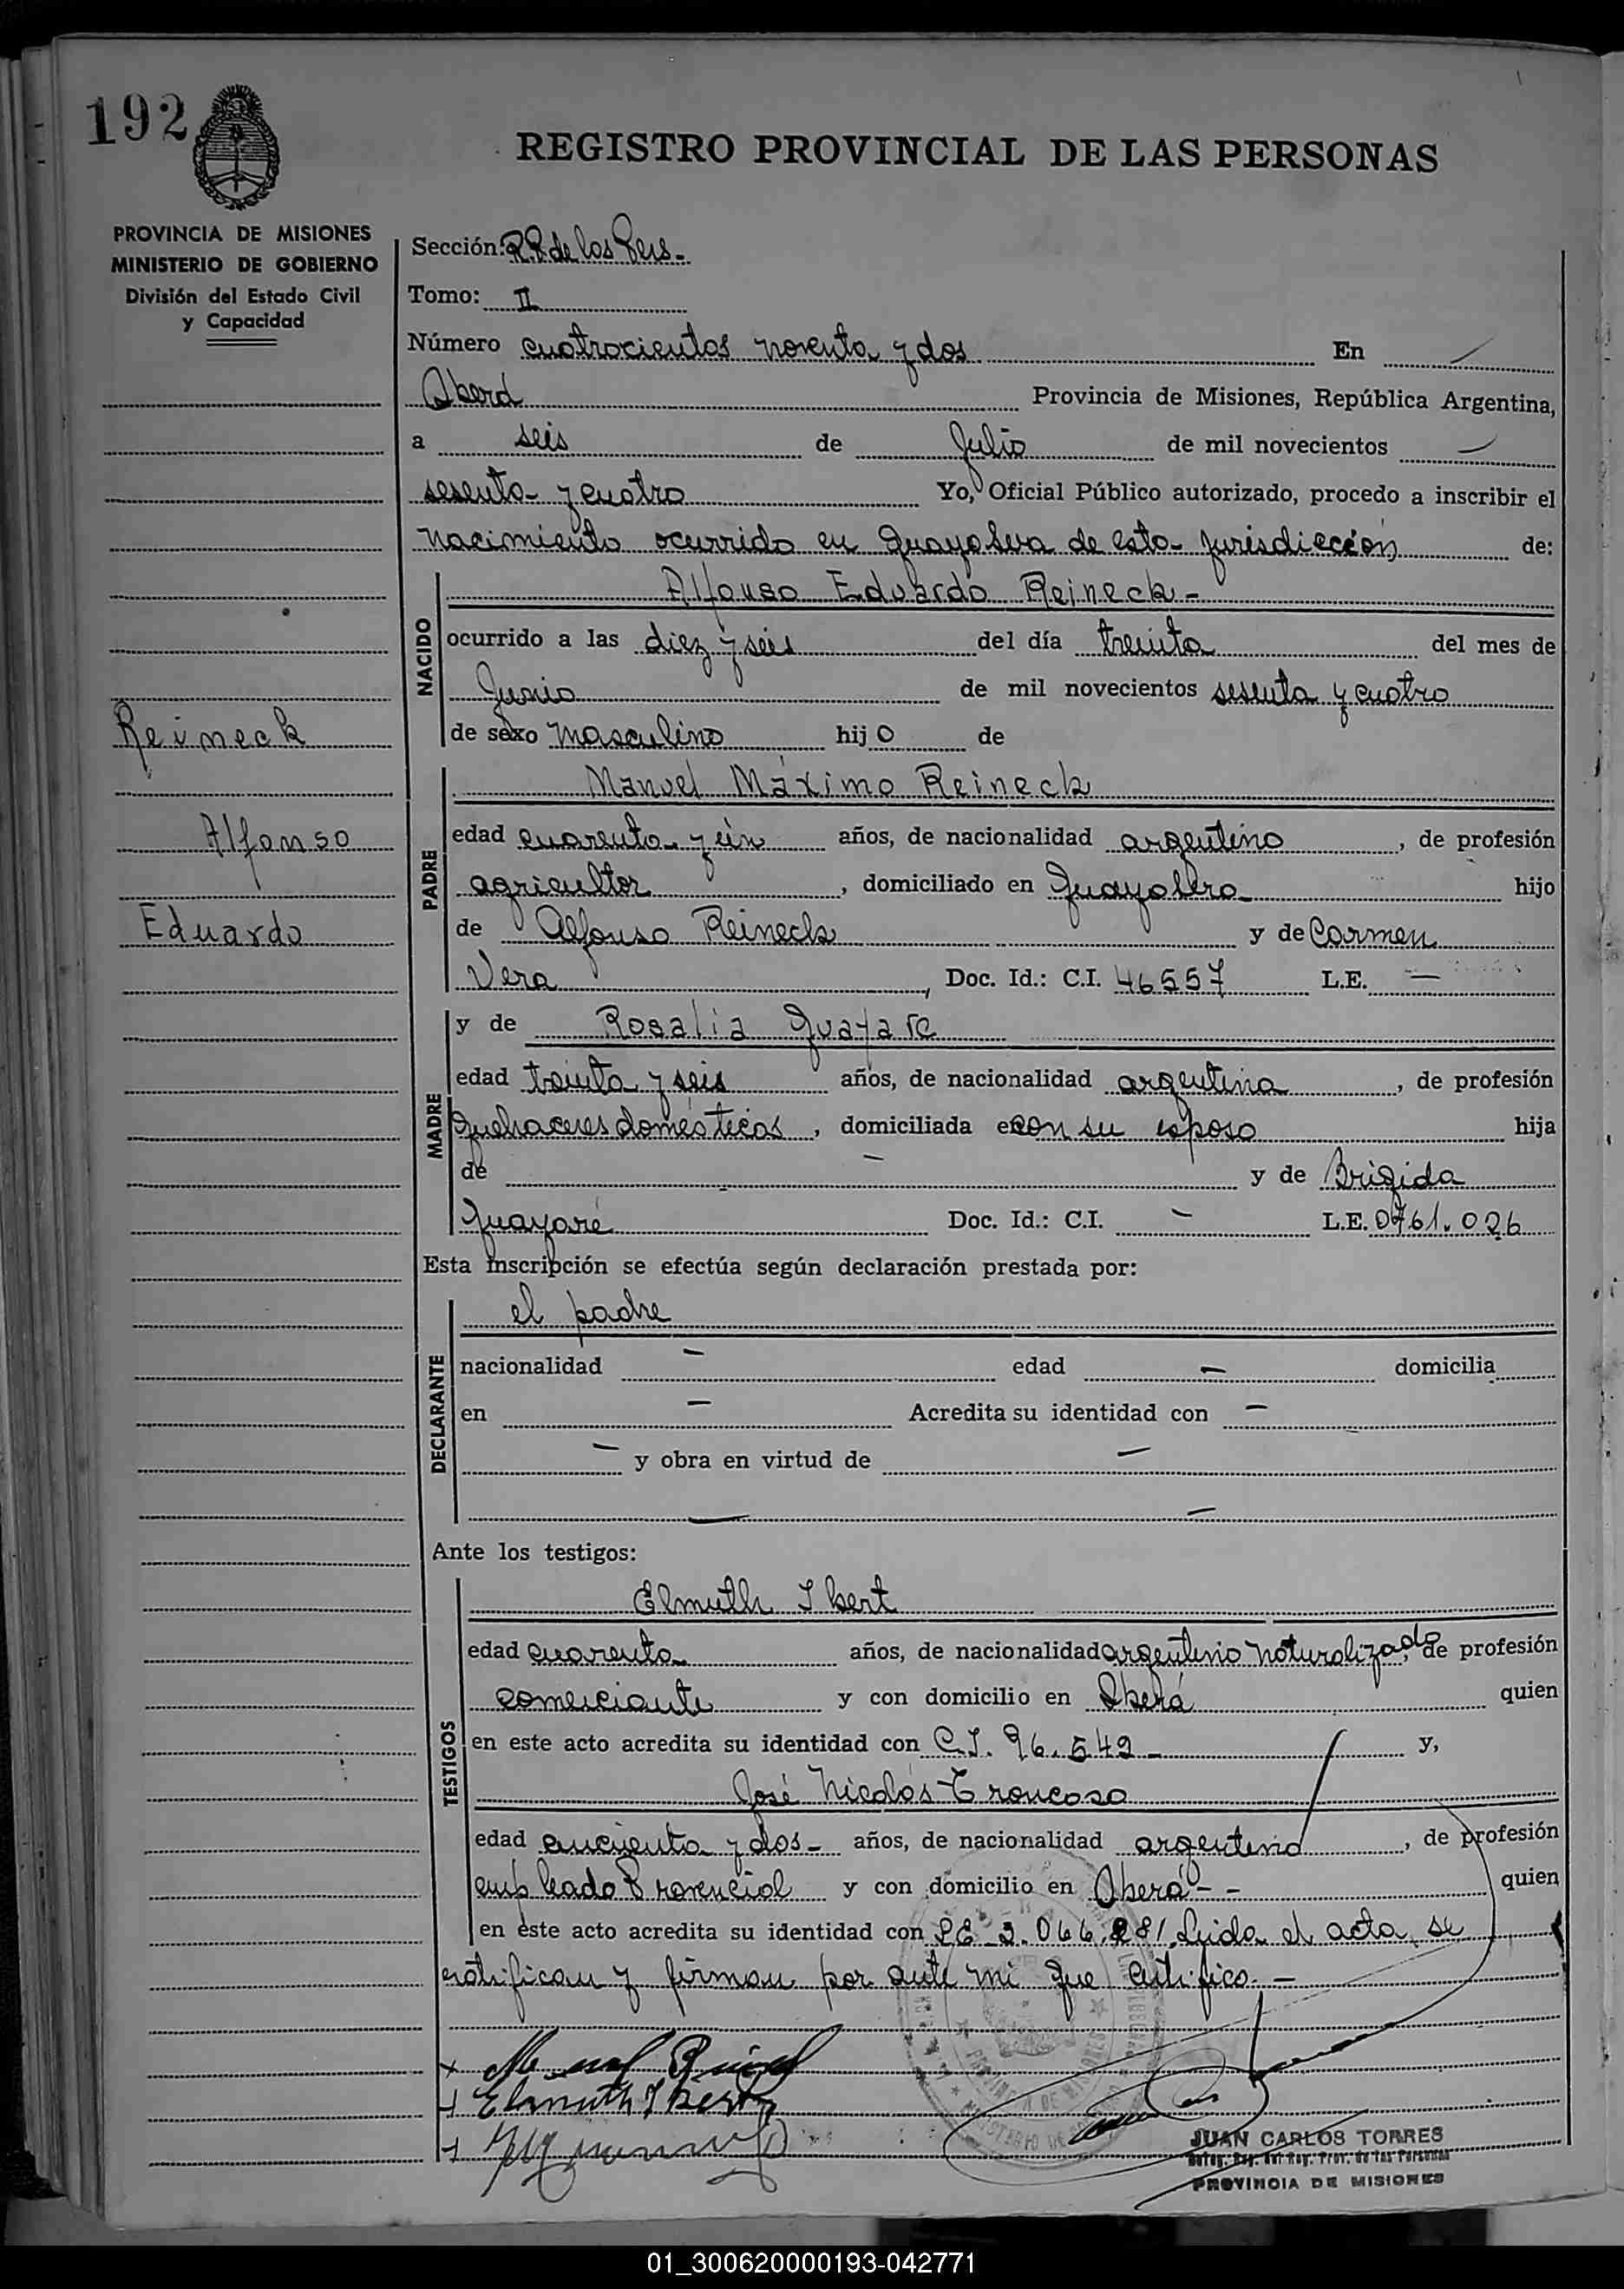 192
REGISTRO PROVINCIAL DE LAS PERSONAS
PROVINCIA DE MISIONES
MINISTERIO DE GOBIERNO
División del Estado Civil
y Capacidad
Sección: R.P. de las Pers.-
Tomo: II
Número cuatrocientos noventa y dos En
Oberá Provincia de Misiones, República Argentina,
a seis de Julio de mil novecientos
sesenta y cuatro Yo, Oficial Público autorizado, procedo a inscribir el
nacimiento ocurrido en de esta jurisdicción de:
NACIDO
Alfonso Eduardo Reineck-
ocurrido a las diez y seis del día treinta del mes de
Junio de mil novecientos sesenta y cuatro
de sexo masculino hijo de
Reineck
Alfonso
Eduardo
PADRE
Manuel Máximo Reineck
edad cuarenta y ún años, de nacionalidad argentino, de profesión
agricultor, domiciliado en hijo
de Alfonso Reineck y de Carmen
Vera, Doc. Id.: C.I. 46557 L.E. —
MADRE
y de Rosalia
edad treinta y seis años, de nacionalidad argentina, de profesión
quehaceres domésticos, domiciliada con su esposo hija
de — y de Brigida
Guayaré Doc. Id.: C.I. — L.E. 0761.026
Esta inscripción se efectúa según declaración prestada por:
DECLARANTE
el padre
nacionalidad — edad — domicilia
en — Acredita su identidad con —
— y obra en virtud de —
Ante los testigos:
TESTIGOS
Elmuth Ibert
edad cuarenta años, de nacionalidad argentino naturalizado, de profesión
comerciante y con domicilio en Oberá quien
en este acto acredita su identidad con C.I. 96.542- y,
José Nicolás Troncoso
edad cincuenta y dos- años, de nacionalidad argentino, de profesión
empleado Provincial y con domicilio en Oberá-- quien
en este acto acredita su identidad con Leida el acta, se
ratifican y firman por ante mi que certifico.-
Elmuth Ibert
JUAN CARLOS TORRES
PROVINCIA DE MISIONES
01_300620000193-042771